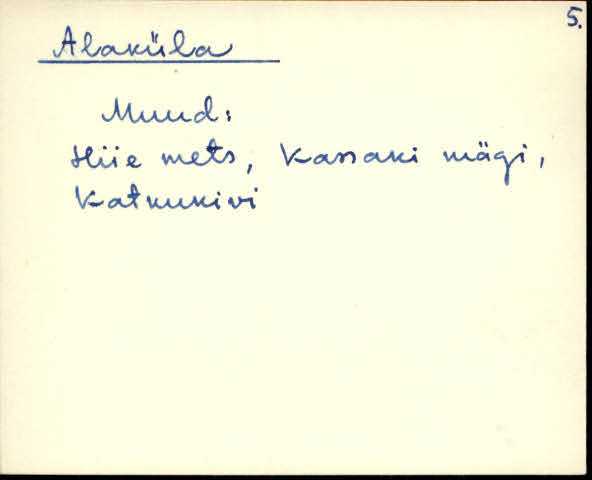 5.
Alaküla
Muud:
Hiie mets, Kassaki mägi,
Katkukivi